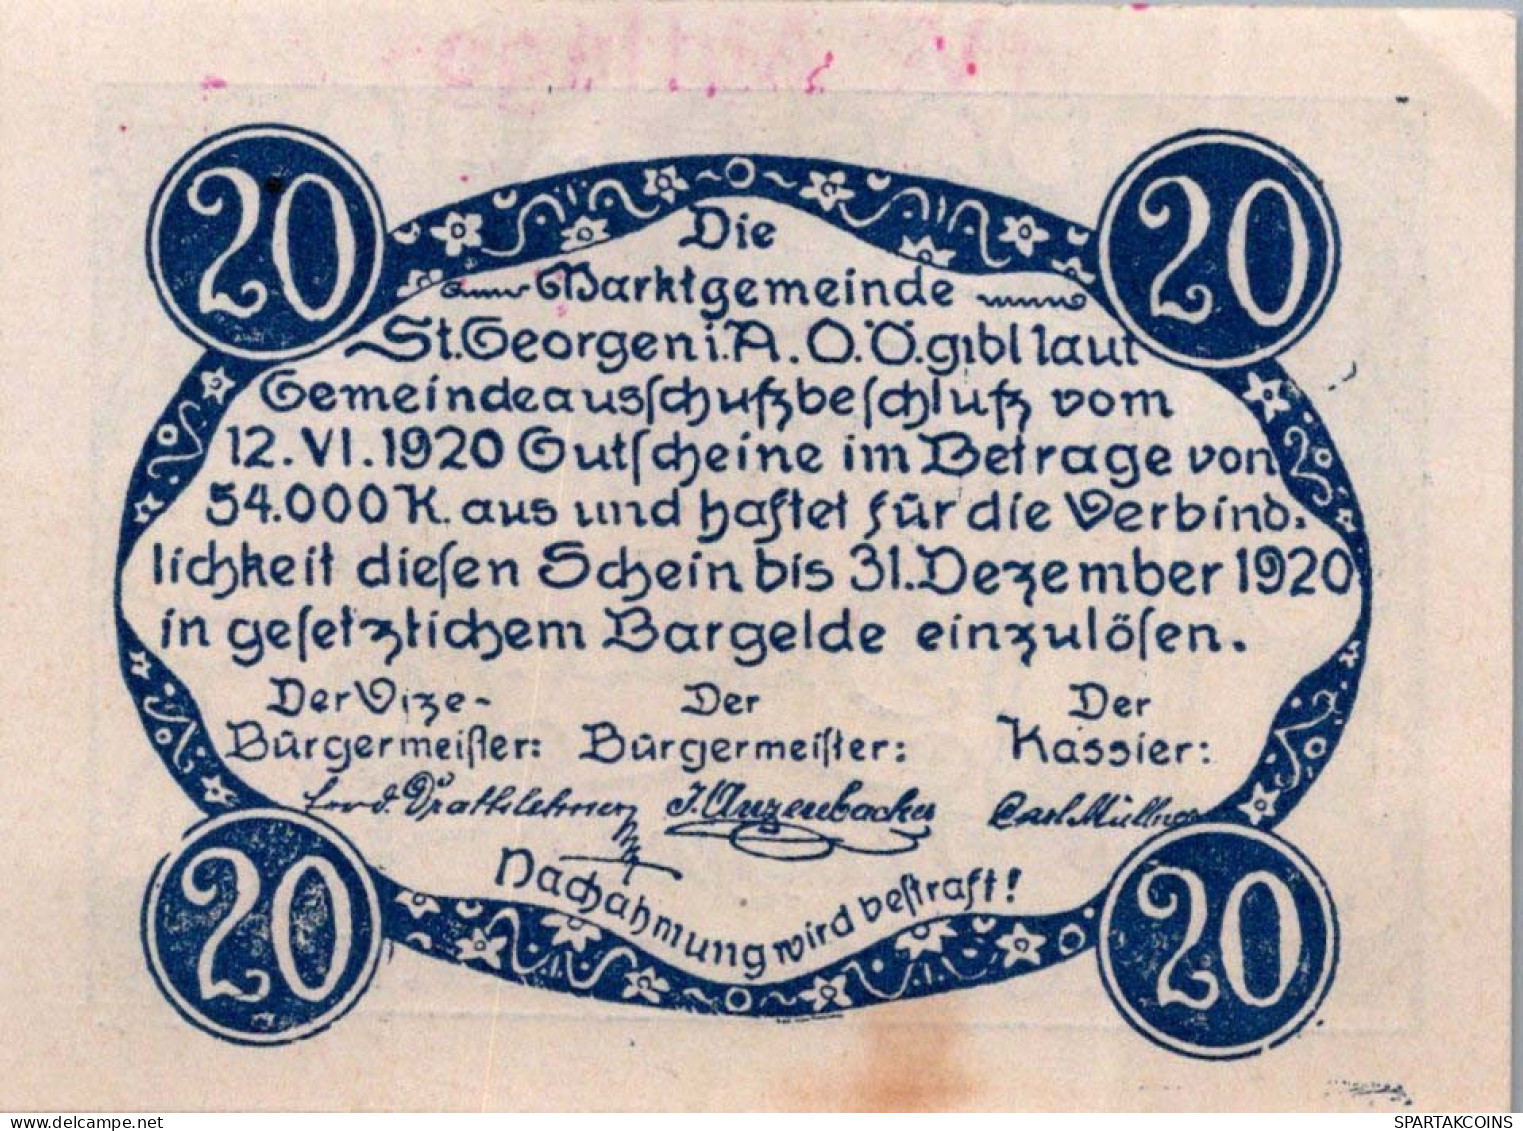 20 20
Die
Marktgemeinde
St. Georgen i. A. O. Ö. gibt laut
Gemeindeausſchuſzbeſchluſz vom
12. VI. 1920 Gutſcheine im Betrage von
54.000 K. aus und haftet für die Verbind=
lichkeit dieſen Schein bis 31. Dezember 1920
in geſetzlichem Bargelde einzulöſen.
Der Vize- Der Der
Bürgermeiſter: Bürgermeiſter: Kassier:
J. Anzenbacher Carl Müllner
Nachahmung wird beſtraft!
20 20
www.delcampe.net SPARTAKCOINS